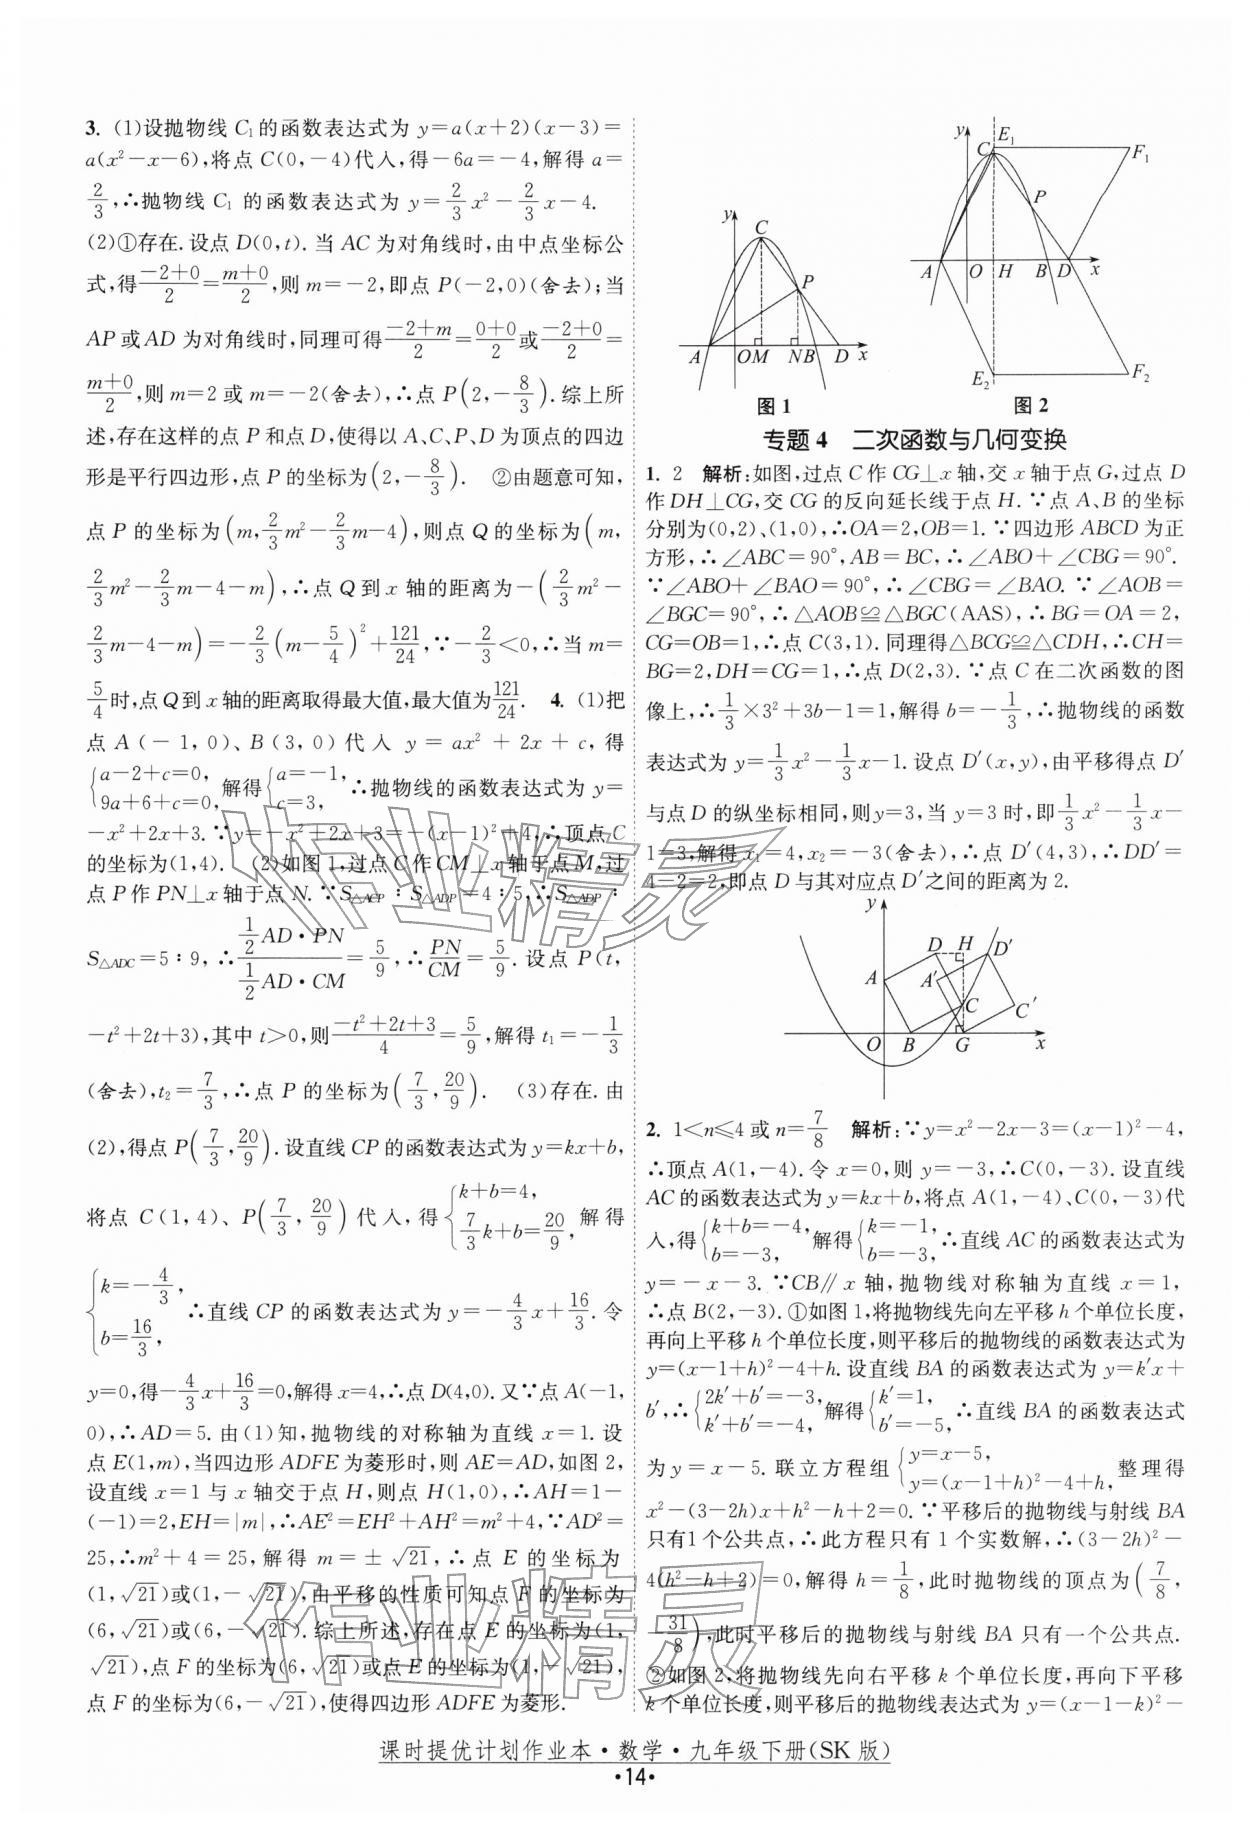 3. (1)设抛物线 C₁的函数表达式为 y=a(x+2)(x-3)=
a(x²-x-6),将点 C(0,-4)代入,得-6a=-4,解得 a=
2/3,∴抛物线 C₁ 的函数表达式为 y=2/3x²-2/3x-4.
(2)①存在.设点 D(0,t).当 AC 为对角线时,由中点坐标公
式,得(-2+0)/2=(m+0)/2,则 m=-2,即点 P(-2,0)(舍去);当
AP 或 AD 为对角线时,同理可得(-2+m)/2=(0+0)/2或(-2+0)/2=
(m+0)/2,则 m=2 或 m=-2(舍去),∴点 P(2,-8/3).综上所
述,存在这样的点 P 和点 D,使得以 A、C、P、D 为顶点的四边
形是平行四边形,点 P 的坐标为(2,-8/3). ②由题意可知,
点 P 的坐标为(m,2/3m²-2/3m-4),则点 Q 的坐标为(m,
2/3m²-2/3m-4-m),∴点 Q 到 x 轴的距离为-(2/3m²-
2/3m-4-m)=-2/3(m-5/4)²+121/24,∵-2/3<0,∴当 m=
5/4时,点 Q 到 x 轴的距离取得最大值,最大值为121/24. 4. (1)把
点 A(-1,0)、B(3,0)代入 y=ax²+2x+c,得
{a-2+c=0, 9a+6+c=0, 解得{a=-1, c=3, ∴抛物线的函数表达式为 y=
-x²+2x+3.∵y=-x²+2x+3=-(x-1)²+4,∴顶点 C
的坐标为(1,4). (2)如图 1,过点 C 作 CM⊥x 轴于点 M,过
点 P 作 PN⊥x 轴于点 N.∵S△ACP:S△ADP=4:5,∴S△ADP:
S△ADC=5:9,∴(1/2AD·PN)/(1/2AD·CM)=5/9,∴PN/CM=5/9.设点 P(t,
-t²+2t+3),其中 t>0,则(-t²+2t+3)/4=5/9,解得 t₁=-1/3
(舍去),t₂=7/3,∴点 P 的坐标为(7/3,20/9). (3)存在.由
(2),得点 P(7/3,20/9).设直线 CP 的函数表达式为 y=kx+b,
将点 C(1,4)、P(7/3,20/9)代入,得{k+b=4, 7/3k+b=20/9, 解得
{k=-4/3, b=16/3, ∴直线 CP 的函数表达式为 y=-4/3x+16/3.令
y=0,得-4/3x+16/3=0,解得 x=4,∴点 D(4,0).又∵点 A(-1,
0),∴AD=5.由(1)知,抛物线的对称轴为直线 x=1.设
点 E(1,m),当四边形 ADFE 为菱形时,则 AE=AD,如图 2,
设直线 x=1 与 x 轴交于点 H,则点 H(1,0),∴AH=1-
(-1)=2,EH=|m|,∴AE²=EH²+AH²=m²+4,∵AD²=
25,∴m²+4=25,解得 m=±√21,∴点 E 的坐标为
(1,√21)或(1,-√21),由平移的性质可知点 F 的坐标为
(6,√21)或(6,-√21).综上所述,存在点 E 的坐标为(1,
√21),点 F 的坐标为(6,√21)或点 E 的坐标为(1,-√21),
点 F 的坐标为(6,-√21),使得四边形 ADFE 为菱形.
y C P A O M N B D x
图 1
y E₁ C F₁ P A O H B D x E₂ F₂
图 2
专题 4 二次函数与几何变换
1. 2 解析:如图,过点 C 作 CG⊥x 轴,交 x 轴于点 G,过点 D
作 DH⊥CG,交 CG 的反向延长线于点 H.∵点 A、B 的坐标
分别为(0,2)、(1,0),∴OA=2,OB=1.∵四边形 ABCD 为正
方形,∴∠ABC=90°,AB=BC,∴∠ABO+∠CBG=90°.
∵∠ABO+∠BAO=90°,∴∠CBG=∠BAO.∵∠AOB=
∠BGC=90°,∴△AOB≌△BGC(AAS),∴BG=OA=2,
CG=OB=1,∴点 C(3,1).同理得△BCG≌△CDH,∴CH=
BG=2,DH=CG=1,∴点 D(2,3).∵点 C 在二次函数的图
像上,∴1/3×3²+3b-1=1,解得 b=-1/3,∴抛物线的函数
表达式为 y=1/3x²-1/3x-1.设点 D′(x,y),由平移得点 D′
与点 D 的纵坐标相同,则 y=3,当 y=3 时,即1/3x²-1/3x-
1=3,解得 x₁=4,x₂=-3(舍去),∴点 D′(4,3),∴DD′=
4-2=2,即点 D 与其对应点 D′之间的距离为 2.
y D H D′ A A′ C C′ O B G x
2. 1<n≤4 或 n=7/8 解析:∵y=x²-2x-3=(x-1)²-4,
∴顶点 A(1,-4).令 x=0,则 y=-3,∴C(0,-3).设直线
AC 的函数表达式为 y=kx+b,将点 A(1,-4)、C(0,-3)代
入,得{k+b=-4, b=-3, 解得{k=-1, b=-3, ∴直线 AC 的函数表达式为
y=-x-3.∵CB∥x 轴,抛物线对称轴为直线 x=1,
∴点 B(2,-3).①如图 1,将抛物线先向左平移 h 个单位长度,
再向上平移 h 个单位长度,则平移后的抛物线的函数表达式为
y=(x-1+h)²-4+h.设直线 BA 的函数表达式为 y=k′x+
b′,∴{2k′+b′=-3, k′+b′=-4, 解得{k′=1, b′=-5, ∴直线 BA 的函数表达式
为 y=x-5.联立方程组{y=x-5, y=(x-1+h)²-4+h, 整理得
x²-(3-2h)x+h²-h+2=0.∵平移后的抛物线与射线 BA
只有 1 个公共点,∴此方程只有 1 个实数解,∴(3-2h)²-
4(h²-h+2)=0,解得 h=1/8,此时抛物线的顶点为(7/8,
-31/8),此时平移后的抛物线与射线 BA 只有一个公共点.
②如图 2,将抛物线先向右平移 k 个单位长度,再向下平移
k 个单位长度,则平移后的抛物线表达式为 y=(x-1-k)²-
课时提优计划作业本·数学·九年级下册(SK 版)
·14·
作业精灵
作业精灵